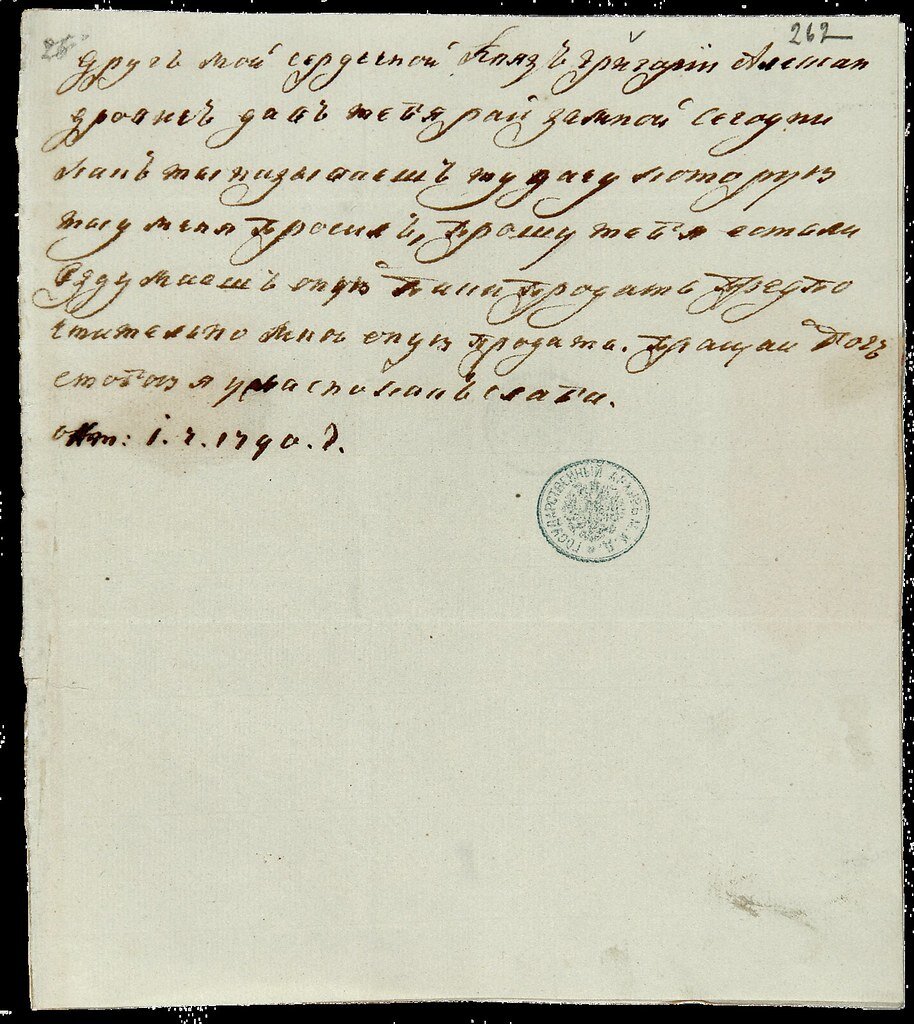 26
262
Другъ мой сердечной Князь Григарій Алексан
дровичъ давъ тебя рай земной сегодни
какъ ты называешъ ту дачу которую
ты у меня просилъ, прошу тебя естьли
вздумаешъ оную паки продать предпо
чтительно мне оную продать. Пращай Богъ
стобою я какъ слаба.
окт: 1. ч. 1790. г.
ГОСУДАРСТВЕННЫЙ АРХИВЪ М. И. Д.